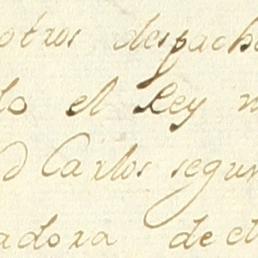 otros despach
do el Rey n
d Carlos segun
adora de el